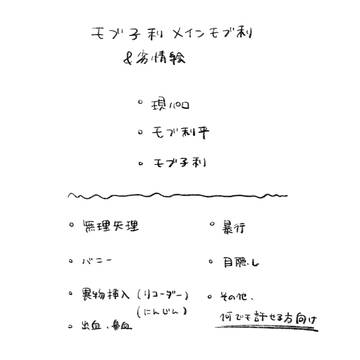 モブ子利 メインモブ利
&劣情絵
• 現パロ
• モブ利平
• モブ子利
• 無理矢理
• バニー
• 異物挿入 (リコーダー)
(にんじん)
• 出血、鼻血
• 暴行
• 目隠し
• その他、
何でも許せる方向け